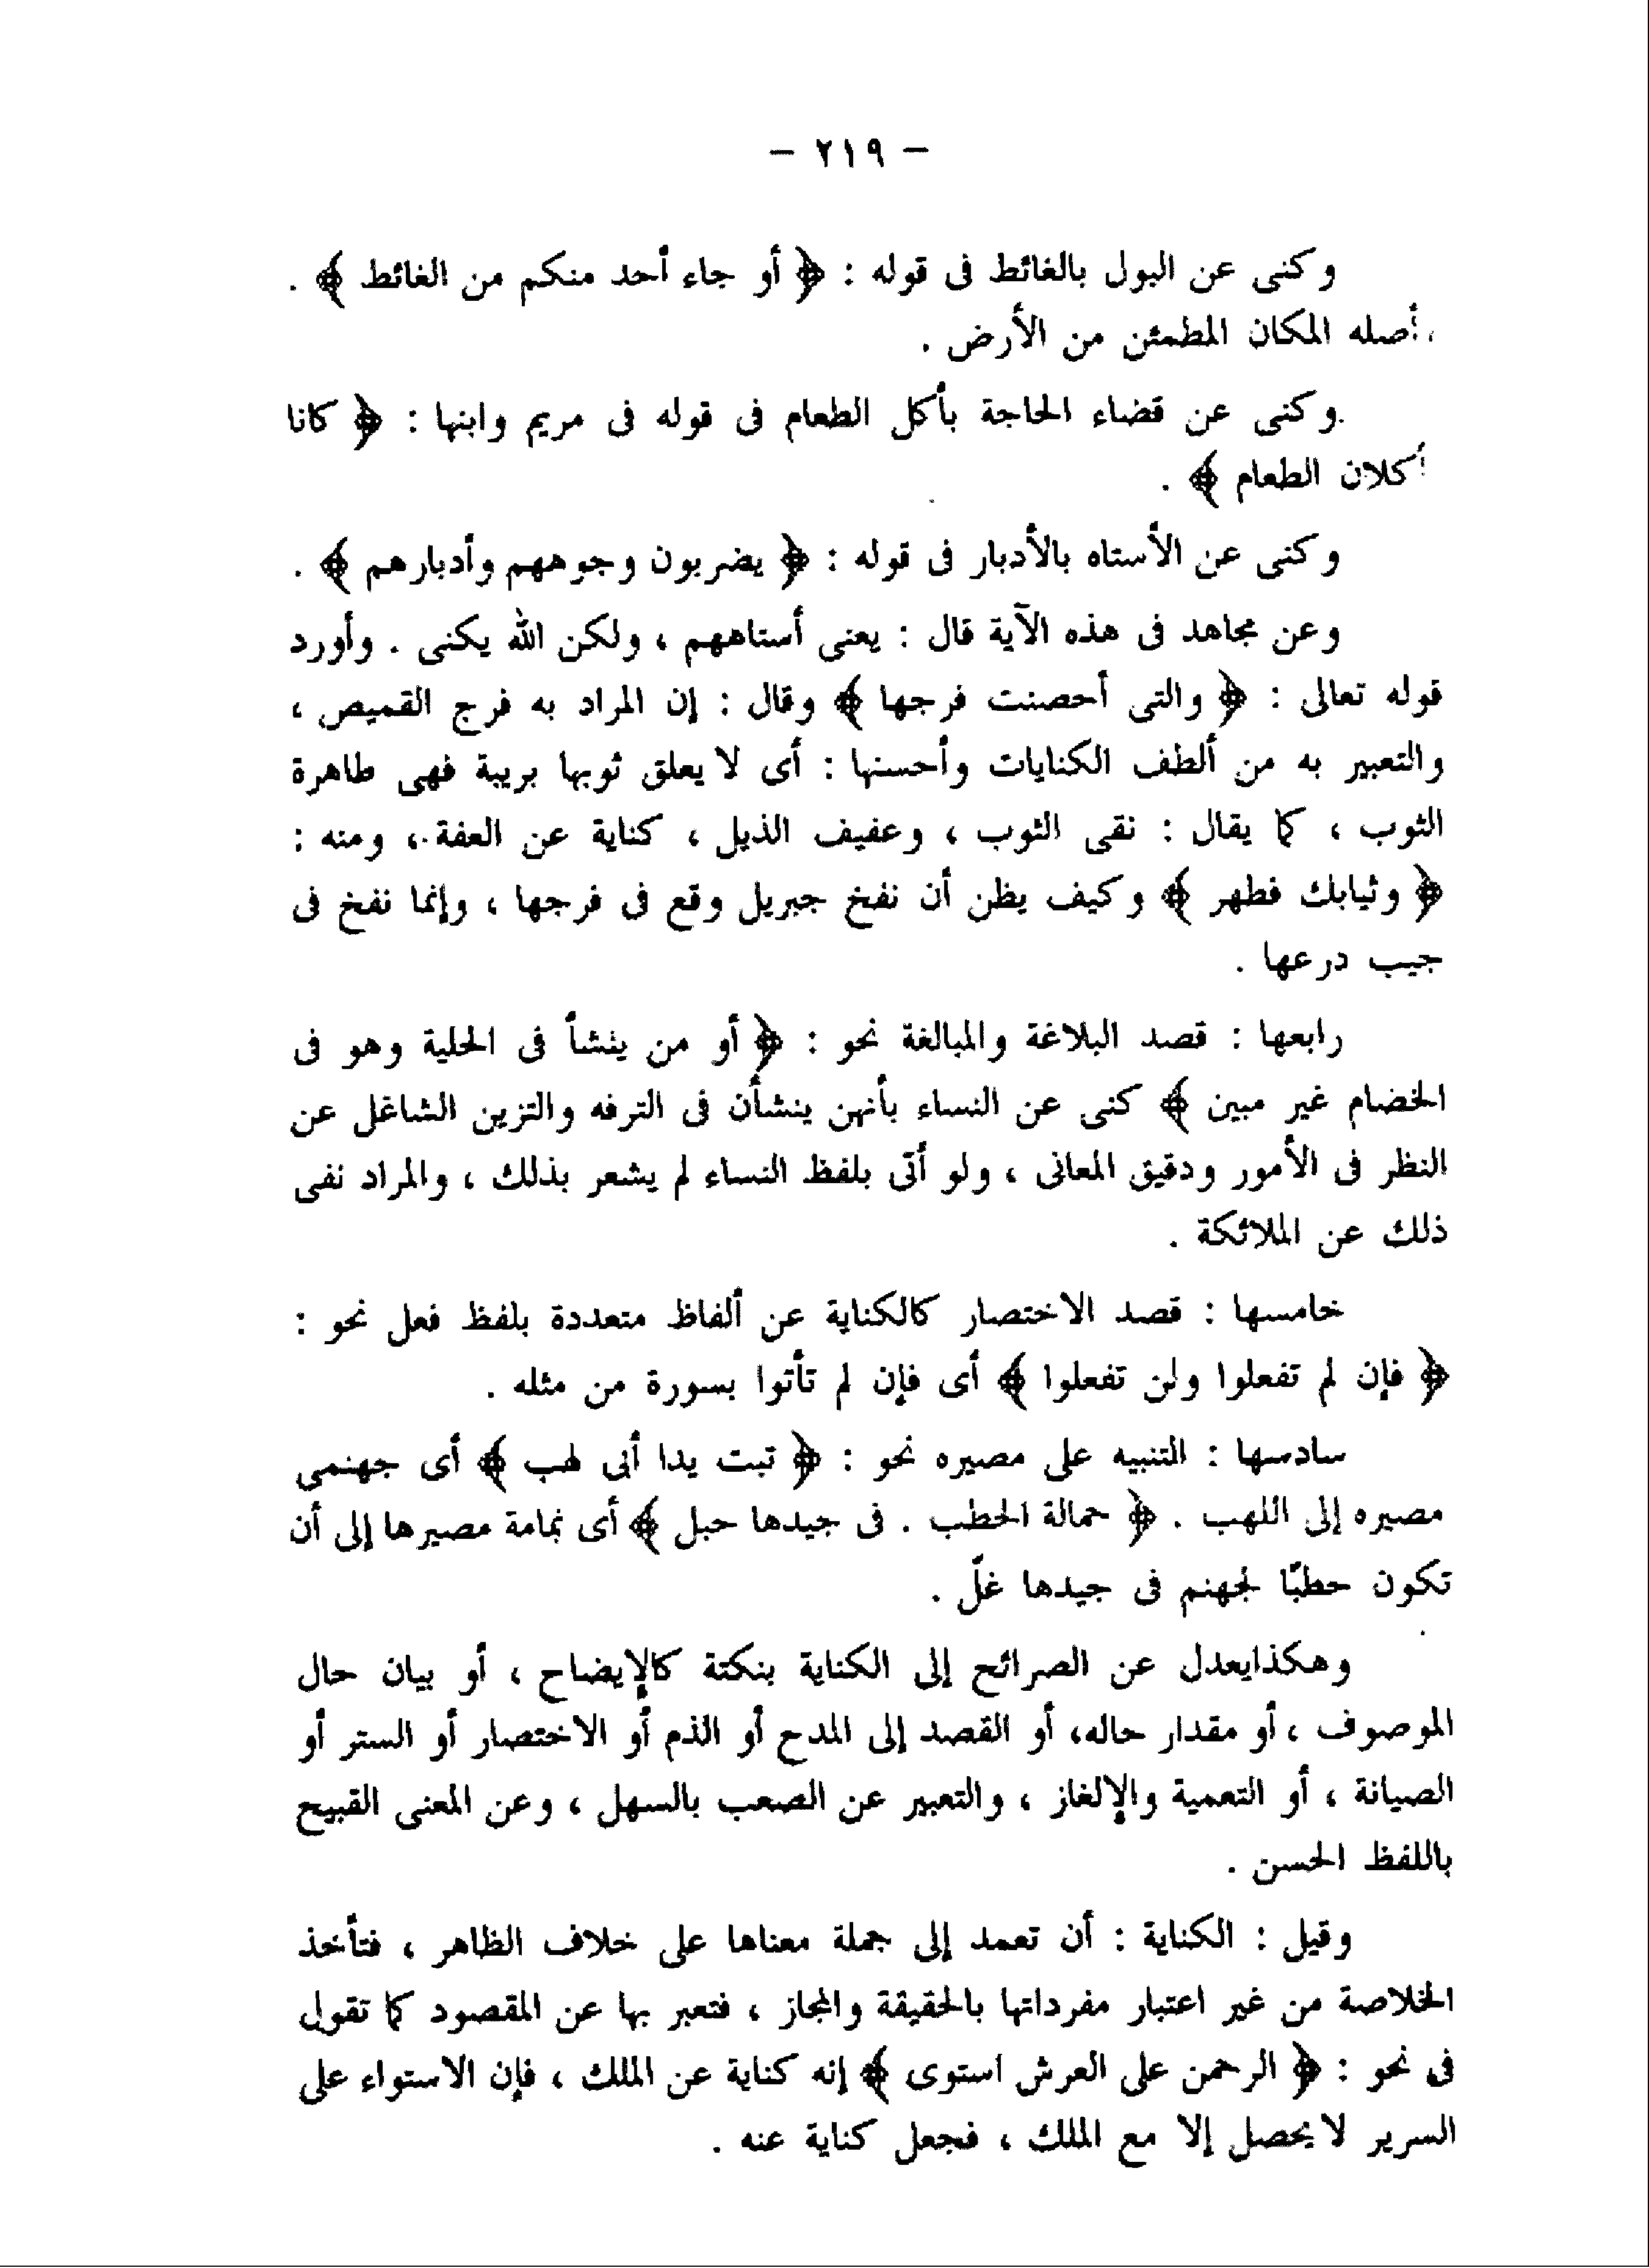 – ٢١٩ –
وكنى عن البول بالغائط فى قوله : ﴿ أو جاء أحد منكم من الغائط ﴾ .
أصله المكان المطمئن من الأرض .
وكنى عن قضاء الحاجة بأكل الطعام فى قوله فى مريم وابنها : ﴿ كانا
أكلان الطعام ﴾ .
وكنى عن الأستاه بالأدبار فى قوله : ﴿ يضربون وجوههم وأدبارهم ﴾ .
وعن مجاهد فى هذه الآية قال : يعنى أستاههم ، ولكن الله يكنى . وأورد
قوله تعالى : ﴿ والتى أحصنت فرجها ﴾ وقال : إن المراد به فرج القميص ،
والتعبير به من ألطف الكنايات وأحسنها : أى لا يعلق ثوبها بريبة فهى طاهرة
الثوب ، كما يقال : نقى الثوب ، وعفيف الذيل ، كناية عن العفة ، ومنه :
﴿ وثيابك فطهر ﴾ وكيف يظن أن نفخ جبريل وقع فى فرجها ، وإنما نفخ فى
جيب درعها .
رابعها : قصد البلاغة والمبالغة نحو : ﴿ أو من ينشأ فى الحلية وهو فى
الخضام غير مبين ﴾ كنى عن النساء بأنهن ينشأن فى الترفه والتزين الشاغل عن
النظر فى الأمور ودقيق المعانى ، ولو أتى بلفظ النساء لم يشعر بذلك ، والمراد نفى
ذلك عن الملائكة .
خامسها : قصد الاختصار كالكناية عن ألفاظ متعددة بلفظ فعل نحو :
﴿ فإن لم تفعلوا ولن تفعلوا ﴾ أى فإن لم تأتوا بسورة من مثله .
سادسها : التنبيه على مصيره نحو : ﴿ تبت يدا أبى لهب ﴾ أى جهنمى
مصيره إلى اللهب . ﴿ حمالة الحطب . فى جيدها حبل ﴾ أى نمامة مصيرها إلى أن
تكون حطبًا لجهنم فى جيدها غلّ .
وهكذايعدل عن الصرائح إلى الكناية بنكتة كالإيضاح ، أو بيان حال
الموصوف ، أو مقدار حاله، أو القصد إلى المدح أو الذم أو الاختصار أو الستر أو
الصيانة ، أو التعمية والإلغاز ، والتعبير عن الصعب بالسهل ، وعن المعنى القبيح
باللفظ الحسن .
وقيل : الكناية : أن تعمد إلى جملة معناها على خلاف الظاهر ، فتأخذ
الخلاصة من غير اعتبار مفرداتها بالحقيقة والمجاز ، فتعبر بها عن المقصود كما تقول
فى نحو : ﴿ الرحمن على العرش استوى ﴾ إنه كناية عن الملك ، فإن الاستواء على
السرير لا يحصل إلا مع الملك ، فجعل كناية عنه .